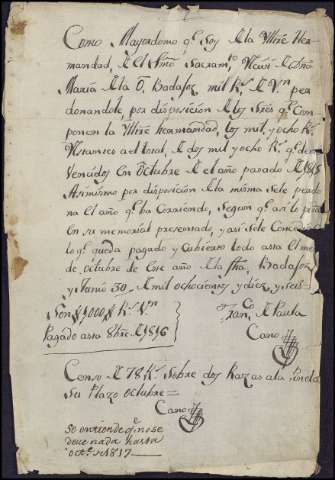 Como Mayordomo q.e Soy de la Yltre Her-
mandad, de el SSmo Sacram.to
Maria de la O. Badajoz, mil R.s de V.n per
donandole, por disposicion de los Sres q.e Com-
ponen la Yltre Hermandad, los mil, y ocho R.s
restantes a el total, de dos mil y ocho R.s q.e
Vencidos En octubre de el año pasado de 1815
Asimismo por disposicion de la misma Sele perdo
na El año q.e ba Corriendo, Segun q.e asi lo
En su memorial presentado, y asi Sele
lo q.e queda pagado y Cubierto todo asta El me
de octubre de Este año de la fha, Badajoz
y Junio 30, de mil ochocientos y diez y seis
Son 1000 R.s V.n
Fran.co de Paula
Pagado asta 8bre de 1816
Cano
Censo de 78 R.s Sobre dos Razas a la
Su Plazo octubre =
Cano
Se entiende q.e no se
deve nada hasta
oct.e de 1817